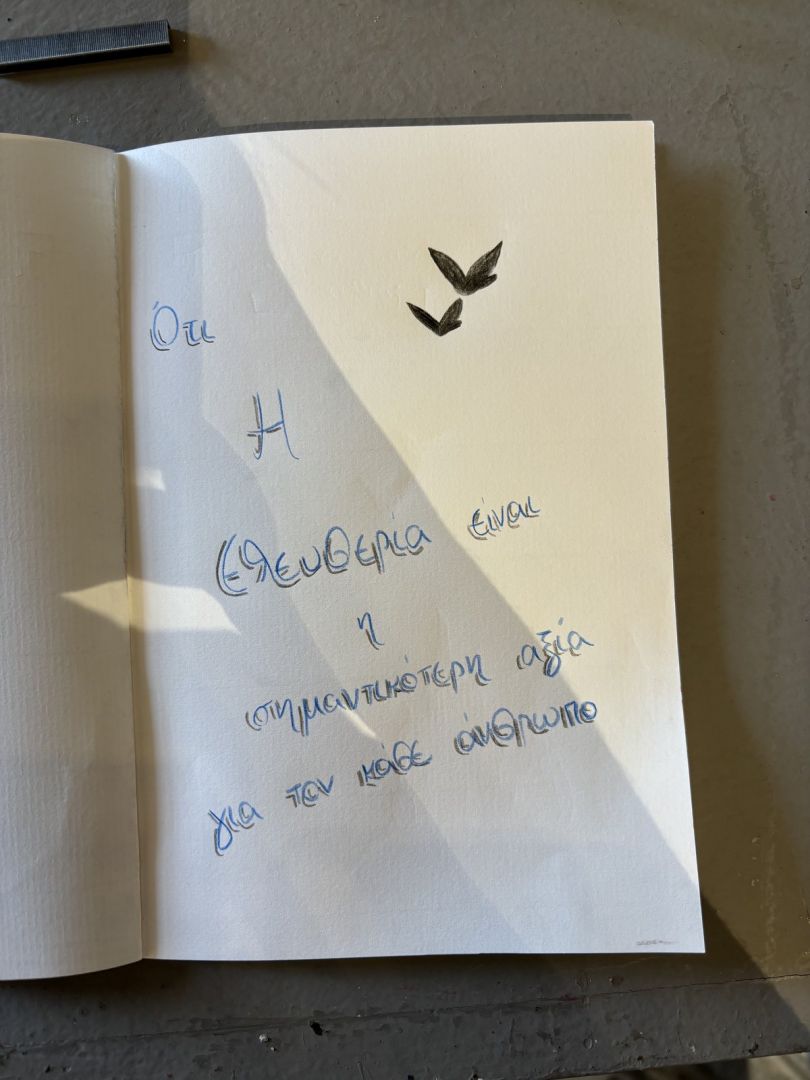 Ότι
Η
Ελευθερία είναι
η
σημαντικότερη αξία
για τον κάθε άνθρωπο